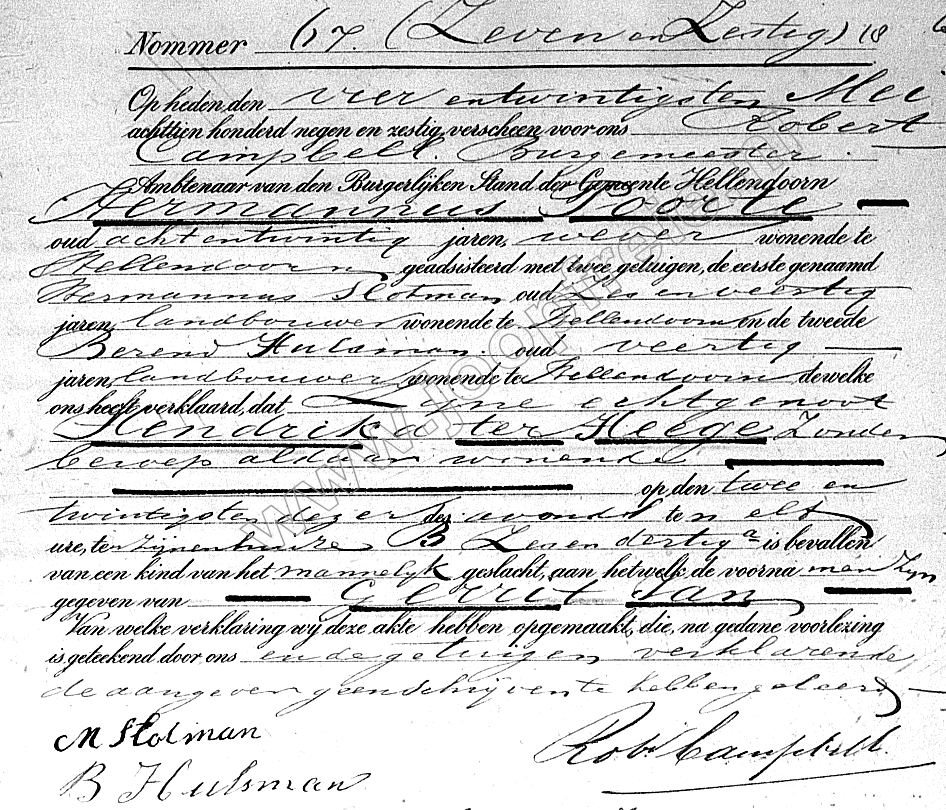 Nommer 67. (Zeven en Zestig) 18
Op heden den vier entwintigsten Mei
achttien honderd negen en zestig, verscheen voor ons Robert
Campbell. Burgemeester.
Ambtenaar van den Burgerlijken Stand der Gemeente Hellendoorn
Hermannus Poorte
oud achtentwintig jaren, wever wonende te
Hellendoorn geadsisteerd met twee getuigen, de eerste genaamd
Hermannus Slotman oud zes en veertig
jaren, landbouwer wonende te Hellendoorn en de tweede
Berend Hulsman. oud veertig
jaren, landbouwer wonende te Hellendoorn, dewelke
ons heeft verklaard, dat Zyne echtgenoot
Hendrika ter Heege Zonder
beroep aldaar wonende
op den twee en
twintigsten dezer des avonds ten elf
ure, ten zijnenhuize B Zevendertig a is bevallen
van een kind van het mannelyk geslacht, aan hetwelk de voorna men Zyn
gegeven van Gerrit Jan
Van welke verklaring wij deze akte hebben opgemaakt, die, na gedane voorlezing
is geteekend door ons en de getuigen verklarende
de aangever geen schrijven te hebben geleerd
M Slotman
B Hulsman
Rob. Campbell.